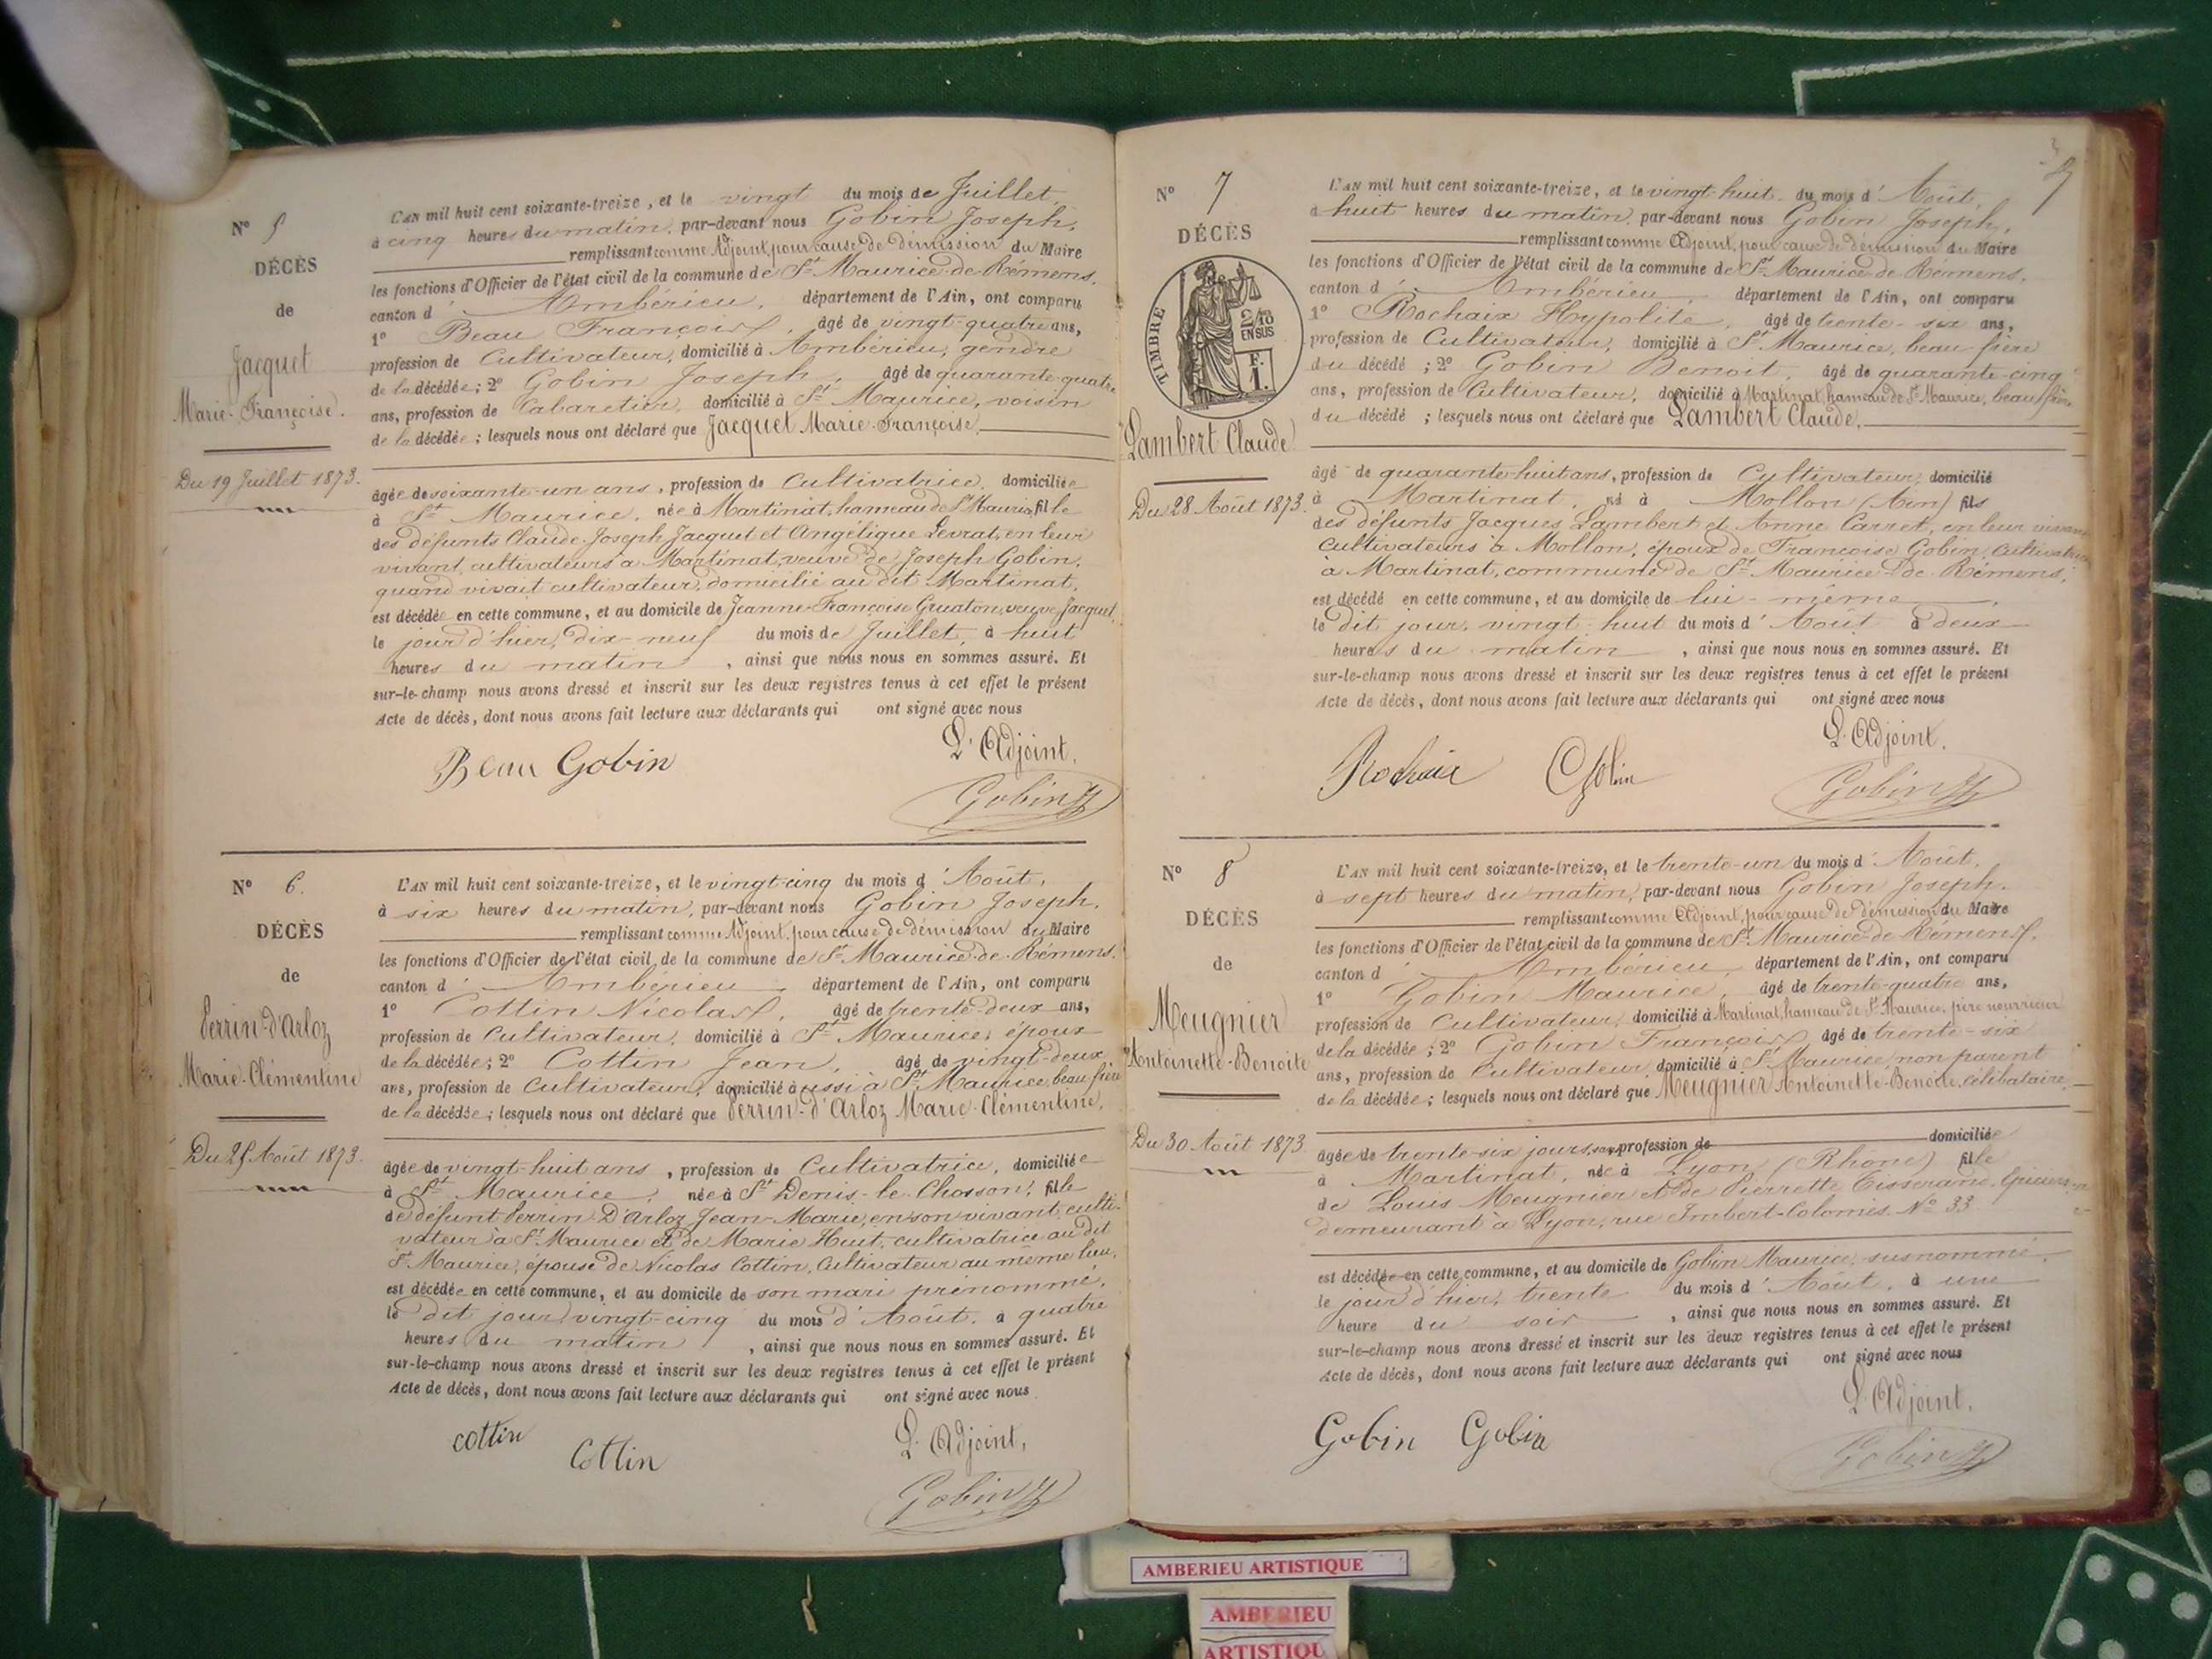 N° 5
DÉCÈS
de
Jacquet
Marie-Françoise.
Du 19 Juillet 1873.
L'AN mil huit cent soixante-treize, et le vingt du mois de Juillet,
à cinq heures du matin, par-devant nous Gobin Joseph,
remplissant comme Adjoint, pour cause de démission du Maire
les fonctions d'Officier de l'état civil de la commune de St Maurice-de-Rémens,
canton d'Ambérieu, département de l'Ain, ont comparu
1° Beau François, âgé de vingt-quatre ans,
profession de Cultivateur, domicilié à Ambérieu, gendre
de la décédée; 2° Gobin Joseph, âgé de quarante-quatre
ans, profession de Cabaretier, domicilié à St Maurice, voisin
de la décédée; lesquels nous ont déclaré que Jacquet Marie-Françoise,
âgée de soixante-un ans, profession de Cultivatrice, domiciliée
à St Maurice, née à Martinat, hameau de St Maurice, fille
des défunts Claude-Joseph Jacquet et Angélique Levrat, en leur
vivant cultivateurs à Martinat, veuve de Joseph Gobin,
quand vivait cultivateur, domicilié au dit Martinat,
est décédée en cette commune, et au domicile de Jeanne-Françoise Gruaton, veuve Jacquet,
le jour d'hier, dix-neuf du mois de Juillet, à huit
heures du matin, ainsi que nous nous en sommes assuré. Et
sur-le-champ nous avons dressé et inscrit sur les deux registres tenus à cet effet le présent
Acte de décès, dont nous avons fait lecture aux déclarants qui ont signé avec nous
L'Adjoint,
Beau Gobin
Gobin
N° 6.
DÉCÈS
de
Perrin-d'Arloz
Marie-Clémentine
Du 25 Août 1873.
L'AN mil huit cent soixante-treize, et le vingt-cinq du mois d'Août,
à six heures du matin, par-devant nous Gobin Joseph,
remplissant comme Adjoint, pour cause de démission du Maire
les fonctions d'Officier de l'état civil de la commune de St Maurice-de-Rémens,
canton d'Ambérieu, département de l'Ain, ont comparu
1° Cottin Nicolas, âgé de trente-deux ans,
profession de Cultivateur, domicilié à St Maurice, époux
de la décédée; 2° Cottin Jean, âgé de vingt-deux
ans, profession de Cultivateur, domicilié aussi à St Maurice, beau-frère
de la décédée; lesquels nous ont déclaré que Perrin-d'Arloz Marie-Clémentine,
âgée de vingt-huit ans, profession de Cultivatrice, domiciliée
à St Maurice, née à St Denis-le-Chosson, fille
de défunt Perrin-D'Arloz Jean-Marie, en son vivant culti-
vateur à St Maurice et de Marie Huit, cultivatrice au dit
St Maurice, épouse de Nicolas Cottin, Cultivateur au même lieu,
est décédée en cette commune, et au domicile de son mari prénommé,
le dit jour vingt-cinq du mois d'Août, à quatre
heures du matin, ainsi que nous nous en sommes assuré. Et
sur-le-champ nous avons dressé et inscrit sur les deux registres tenus à cet effet le présent
Acte de décès, dont nous avons fait lecture aux déclarants qui ont signé avec nous
cottin
Cottin
L'Adjoint,
Gobin
N° 7
DÉCÈS
TIMBRE
2/10 EN SUS
F. 1.
Lambert Claude
Du 28 Août 1873.
L'AN mil huit cent soixante-treize, et le vingt-huit du mois d'Août,
à huit heures du matin, par-devant nous Gobin Joseph,
remplissant comme Adjoint, pour cause de démission du Maire
les fonctions d'Officier de l'état civil de la commune de St Maurice-de-Rémens,
canton d'Ambérieu, département de l'Ain, ont comparu
1° Rochaix Hypolite, âgé de trente-six ans,
profession de Cultivateur, domicilié à St Maurice, beau-frère
du décédé; 2° Gobin Benoit, âgé de quarante-cinq
ans, profession de Cultivateur, domicilié à Martinat, hameau de St Maurice, beau-frère
du décédé; lesquels nous ont déclaré que Lambert Claude,
âgé de quarante-huit ans, profession de Cultivateur, domicilié
à Martinat, né à Mollon (Ain) fils
des défunts Jacques Lambert et Anne Carret, en leur vivant
cultivateurs à Mollon, époux de Françoise Gobin, Cultivatrice
à Martinat, commune de St Maurice-de-Rémens,
est décédé en cette commune, et au domicile de lui-même,
le dit jour, vingt-huit du mois d'Août à deux
heures du matin, ainsi que nous nous en sommes assuré. Et
sur-le-champ nous avons dressé et inscrit sur les deux registres tenus à cet effet le présent
Acte de décès, dont nous avons fait lecture aux déclarants qui ont signé avec nous
L'Adjoint,
Rochaix Gobin
Gobin
N° 8
DÉCÈS
de
Meugnier
Antoinette-Benoite
Du 30 Août 1873.
L'AN mil huit cent soixante-treize, et le trente-un du mois d'Août,
à sept heures du matin, par-devant nous Gobin Joseph,
remplissant comme Adjoint, pour cause de démission du Maire
les fonctions d'Officier de l'état civil de la commune de St Maurice-de-Rémens,
canton d'Ambérieu, département de l'Ain, ont comparu
1° Gobin Maurice, âgé de trente-quatre ans,
profession de Cultivateur, domicilié à Martinat, hameau de St Maurice, père nourricier
de la décédée; 2° Gobin François, âgé de trente-six
ans, profession de Cultivateur, domicilié à St Maurice, non parent
de la décédée; lesquels nous ont déclaré que Meugnier Antoinette-Benoite, célibataire,
âgée de trente-six jours, sans profession de domiciliée
à Martinat, née à Lyon (Rhône) fille
de Louis Meugnier et de Pierrette Tisserand,
demeurant à Lyon, rue Imbert-Colomès N° 33
est décédée en cette commune, et au domicile de Gobin Maurice, susnommé,
le jour d'hier, trente du mois d'Août, à une
heure du soir, ainsi que nous nous en sommes assuré. Et
sur-le-champ nous avons dressé et inscrit sur les deux registres tenus à cet effet le présent
Acte de décès, dont nous avons fait lecture aux déclarants qui ont signé avec nous
L'Adjoint,
Gobin Gobin
Gobin
AMBERIEU ARTISTIQUE
AMBERIEU
ARTISTIQU